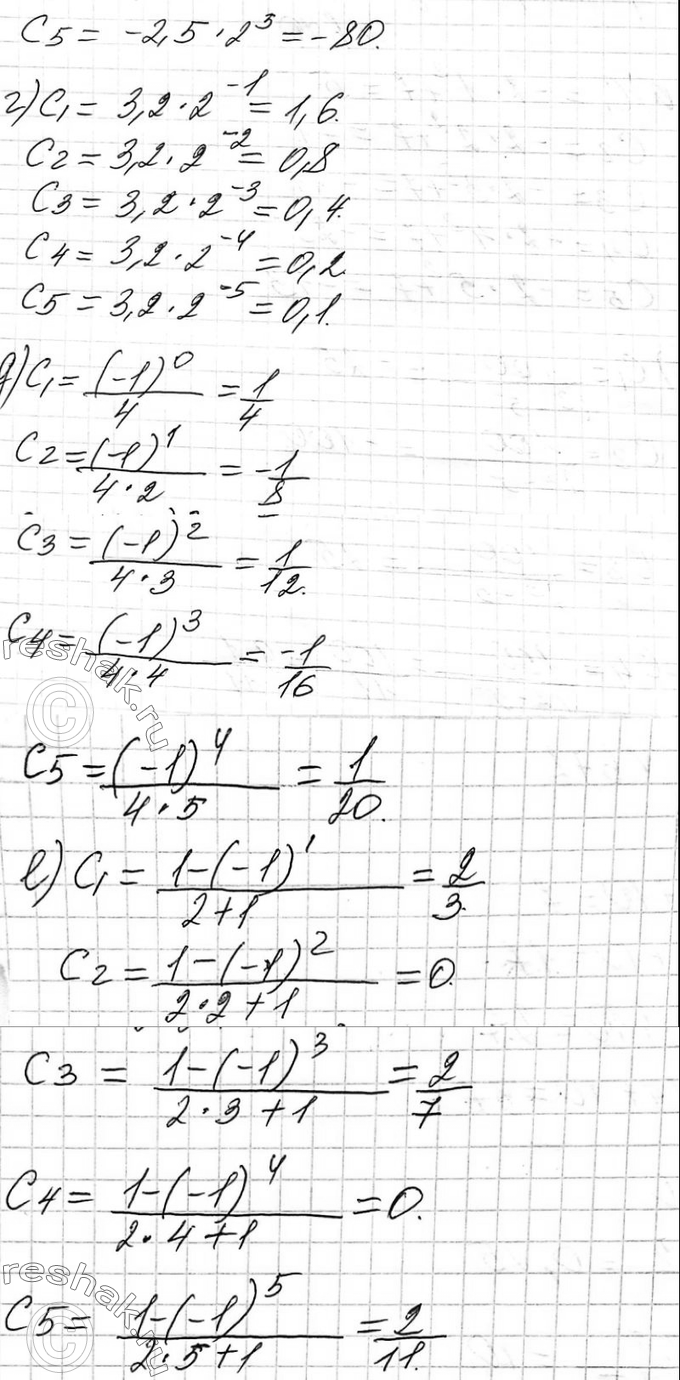 C5 = -2,5 · 2³ = -80.
г) C₁ = 3,2 · 2⁻¹ = 1,6.
C2 = 3,2 · 2⁻² = 0,8
C3 = 3,2 · 2⁻³ = 0,4.
C4 = 3,2 · 2⁻⁴ = 0,2.
C5 = 3,2 · 2⁻⁵ = 0,1.
д) C₁ = (-1)⁰/4 = 1/4
C2 = (-1)¹/(4·2) = -1/8
C3 = (-1)²/(4·3) = 1/12.
C4 = (-1)³/(4·4) = -1/16
reshak.ru
©
C5 = (-1)⁴/(4·5) = 1/20.
е) C₁ = (1-(-1)¹)/(2+1) = 2/3.
C2 = (1-(-1)²)/(2·2+1) = 0.
C3 = (1-(-1)³)/(2·3+1) = 2/7
C4 = (1-(-1)⁴)/(2·4+1) = 0.
reshak.ru
©
C5 = (1-(-1)⁵)/(2·5+1) = 2/11.